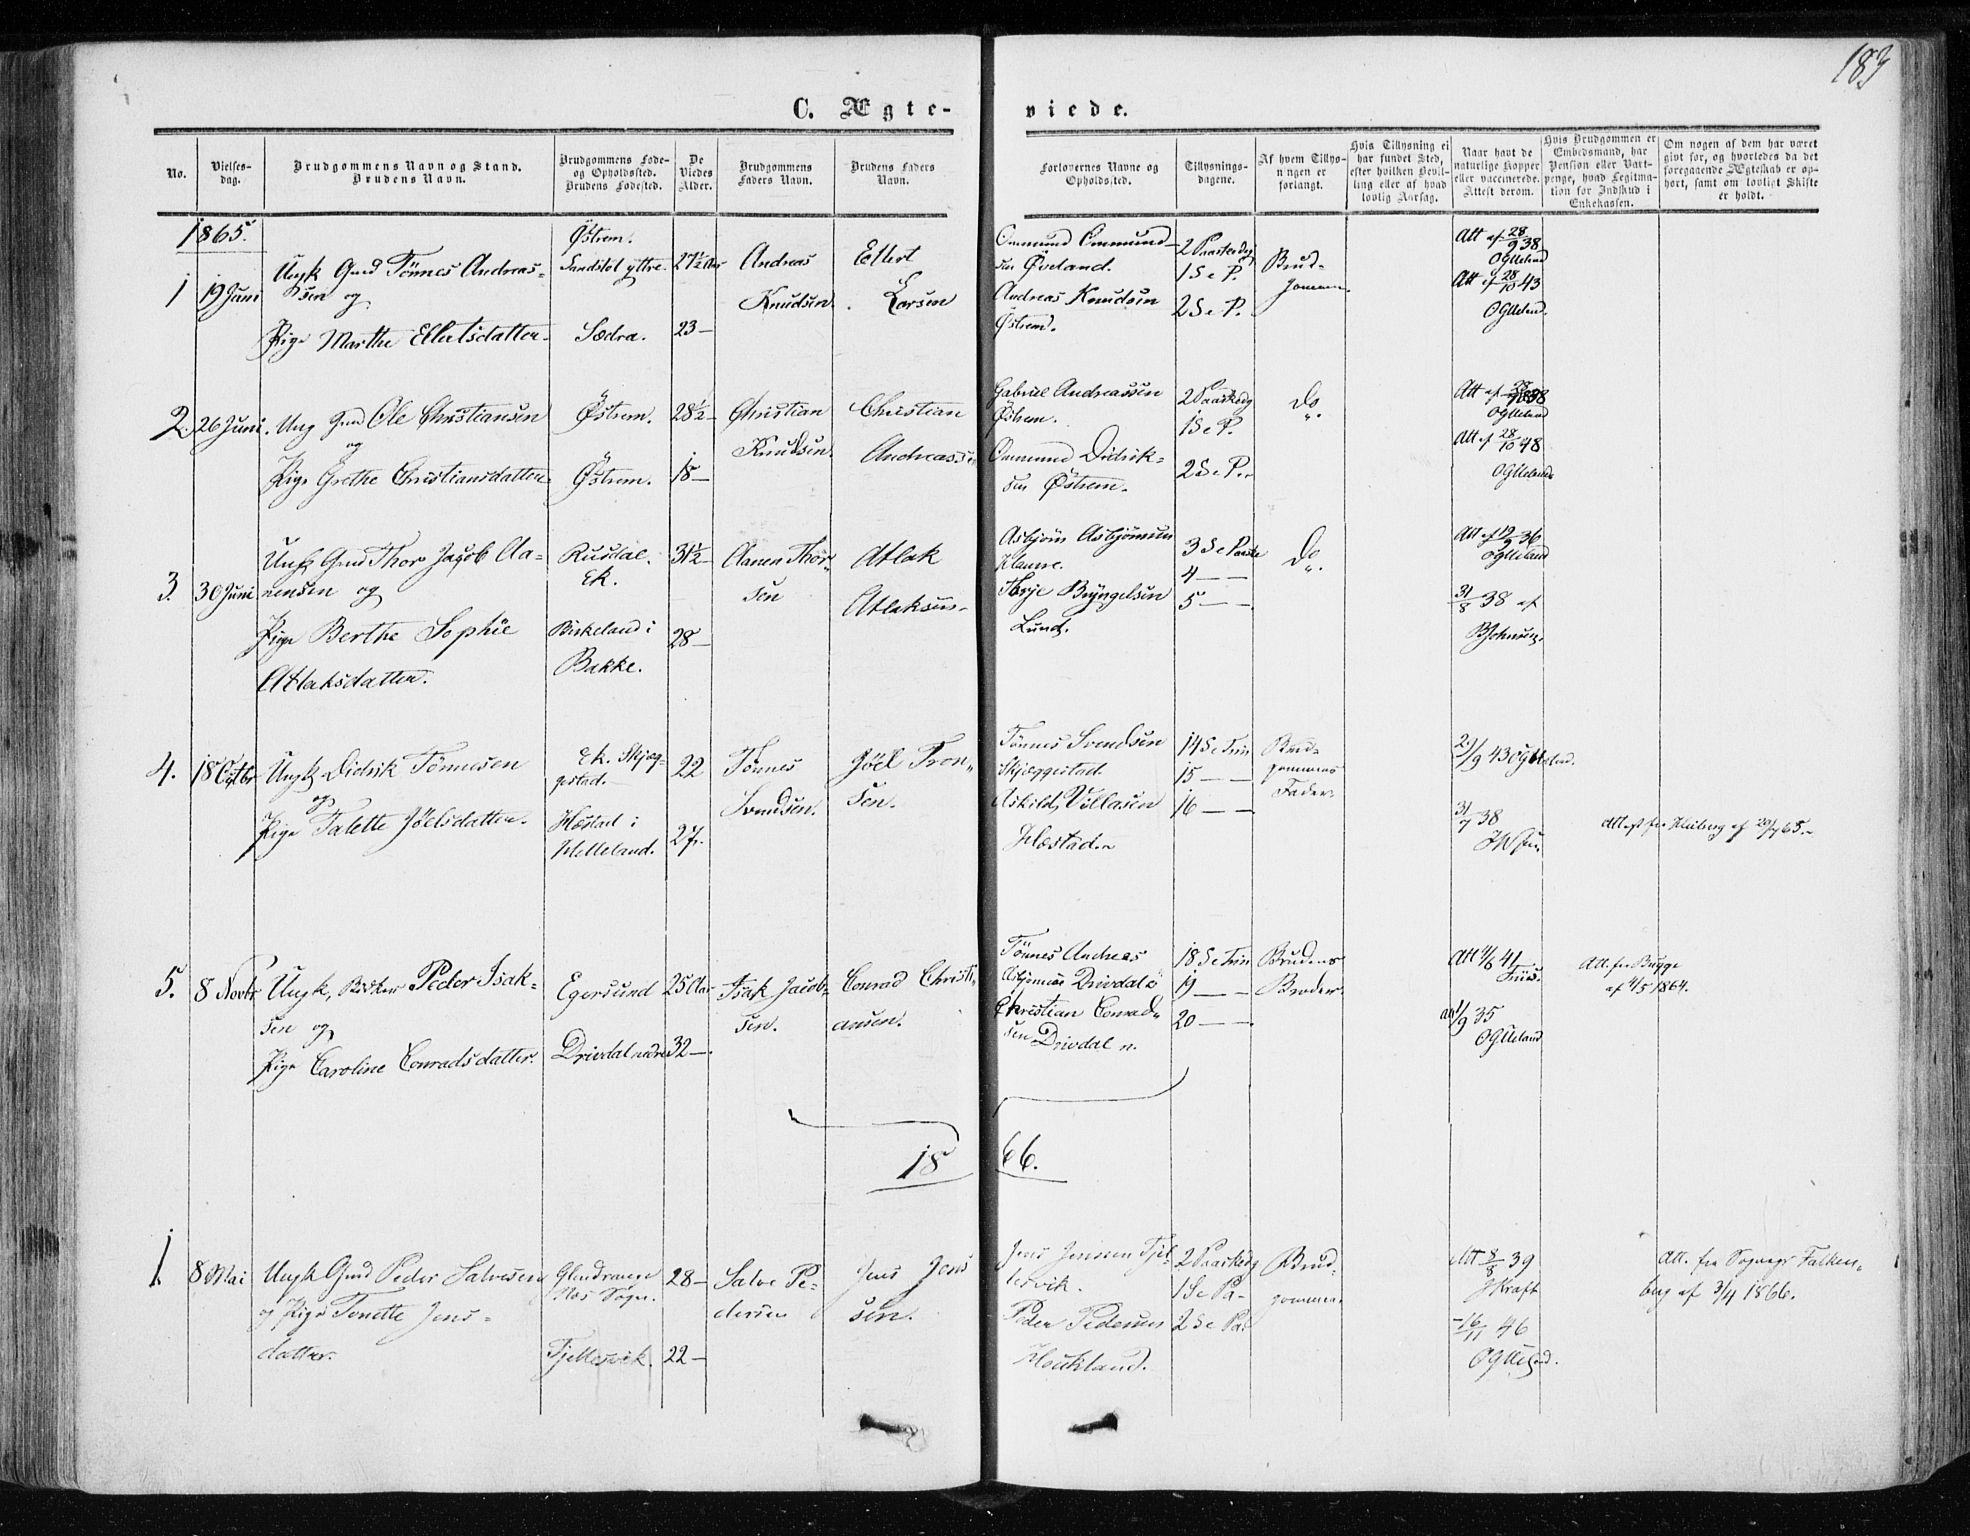 183
C. Ægte-viede.
No.
Vielses-
dag.
Brudgommens Navn og Stand.
Brudens Navn.
Brudgommens Føde-
og Opholdssted.
Brudens Fødested.
De
Viedes
Alder.
Brudgommens
Faders Navn.
Brudens Faders
Navn.
Forlovernes Navne og
Opholdssted.
Tillysnings-
dagene.
Af hvem Tillys-
ningen er
forlangt.
Hvis Tillysning ei
har fundet Sted,
efter hvilken Bevil-
ling eller af hvad
lovlig Aarsag.
Naar havt de
naturlige Kopper
eller vaccinerede.
Attest derom.
Hvis Brudgommen er
Embedsmand, har
Pension eller Vart-
penge, hvad Legitima-
tion for Indskud i
Enkekassen.
Om nogen af dem har været
gift før, og hvorledes da det
foregaaende Ægteskab er op-
hørt, samt om lovligt Skifte
er holdt.
1865.
1 19 Juni
Ungk Gmd Tönnes Andreas-
sen og
Pige Marthe Ellertsdatter.
Östrem.
Sandstøl yttre.
Sædra.
27½ Aar
23 —
Andreas
Knudsen.
Ellert
Larsen
Ommund Ommund-
sen Øveland.
Andreas Knudsen
Östrem.
2 Paaskedg
1 S e P.
2 S e P.
Brud-
gommen.
Att af 28/9 38
OGUeland
Att af 28/10 43
OGUeland.
2. 26 Juni.
Ung Gmd Ole Christiansen
og
Pige Grethe Christiansdatter
Östrem.
Östrem.
28½ —
18 —
Christian
Knudsen.
Christian
Andreassen
Gabriel Andreassen
Östrem.
Ommund Didrik-
sen Östrem.
2 Paaskedg
1 S e P.
2 S e P.
Do
Att af
OGUeland
Att af 28/10 48
OGUeland.
3. 30 Juni
Ungk Gmd Thor Jacob Aa-
nensen og
Pige Berthe Sophie
Atlaksdatter.
Rusdal.
Ek.
Birkeland i
Bakke.
31½ —
28 —
Aanen Thor-
sen
Atlak
Atlaksen.
Asbjörn Asbjörnsen
Terje Bryngelsen
Lund.
3 S e Paaske
4 — —
5 — —
Do
Att af 19/9 36
OGUeland
31/8 38 af
BJohnsen.
4. 18 Octbr
Ungk Didrik Tönnesen
og
Pige Talette Jöelsdatter.
Ek. Skjæg-
gestad.
Hæstad i
Helleland.
22
27.
Tönnes
Svendsen.
Jöel Tron-
sen.
Tönnes Svendsen
Skjæggestad
Askild Villasen
Hæstad.
14 S e Trin
15 — —
16 — —
Brud-
gommens
Fader.
29/9 43 OGUeland.
31/7 38
Attest fra Heiberg af 29/7 65.
5. 8 Novbr
Ungk, Bödker Peder Isak-
sen og
Pige Caroline Conradsdatter.
Egersund
Drivdal nedre
25 Aar
32 —.
Isak Jacob-
sen.
Conrad Christi-
ansen.
Tönnes Andreas
Asbjörnsen Drivdal ö
Christian Conrad-
sen Drivdal n.
18 S e Trin
19 — —
20 — —.
Brudens
Broder.
Att 4/6 41
1/9 35
OGUeland
Att. fra Bugge
af 4/5 1864.
1866.
1. 8 Mai
Ungk Gmd Peder Salvesen
og Pige Tonette Jens-
datter.
Glendrange
Næs Sogn.
Fjellesvik.
28 —
22 —
Salve Pe-
dersen
Jens Jens
sen.
Jens Jenssen Fjel-
lesvik.
Peder Pedersen
Houkland.
2 Paaskedg
1 S e Pa-
2 S e Pa.
Brud-
gommen.
Att 8/8 39
HKraft
16/11 46
OGUeland.
Att. fra Sognepr Falken-
berg af 3/4 1866.